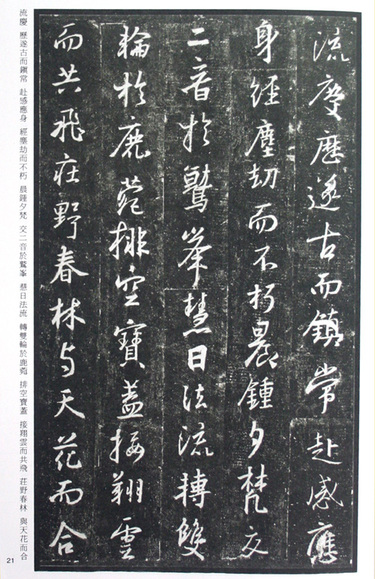 流慶歷遂古而鎮常赴感應
身經塵劫而不朽晨鍾夕梵交
二音於鷲峯慧日法流轉雙
輪於鹿菀排空寶蓋接翔雲
而共飛莊野春林与天花而合
流慶 歷遂古而鎮常 赴感應身 經塵劫而不朽 晨鍾夕梵 交二音於鷲峯 慧日法流 轉雙輪於鹿菀 排空寶蓋 接翔雲而共飛 莊野春林 與天花而合
21